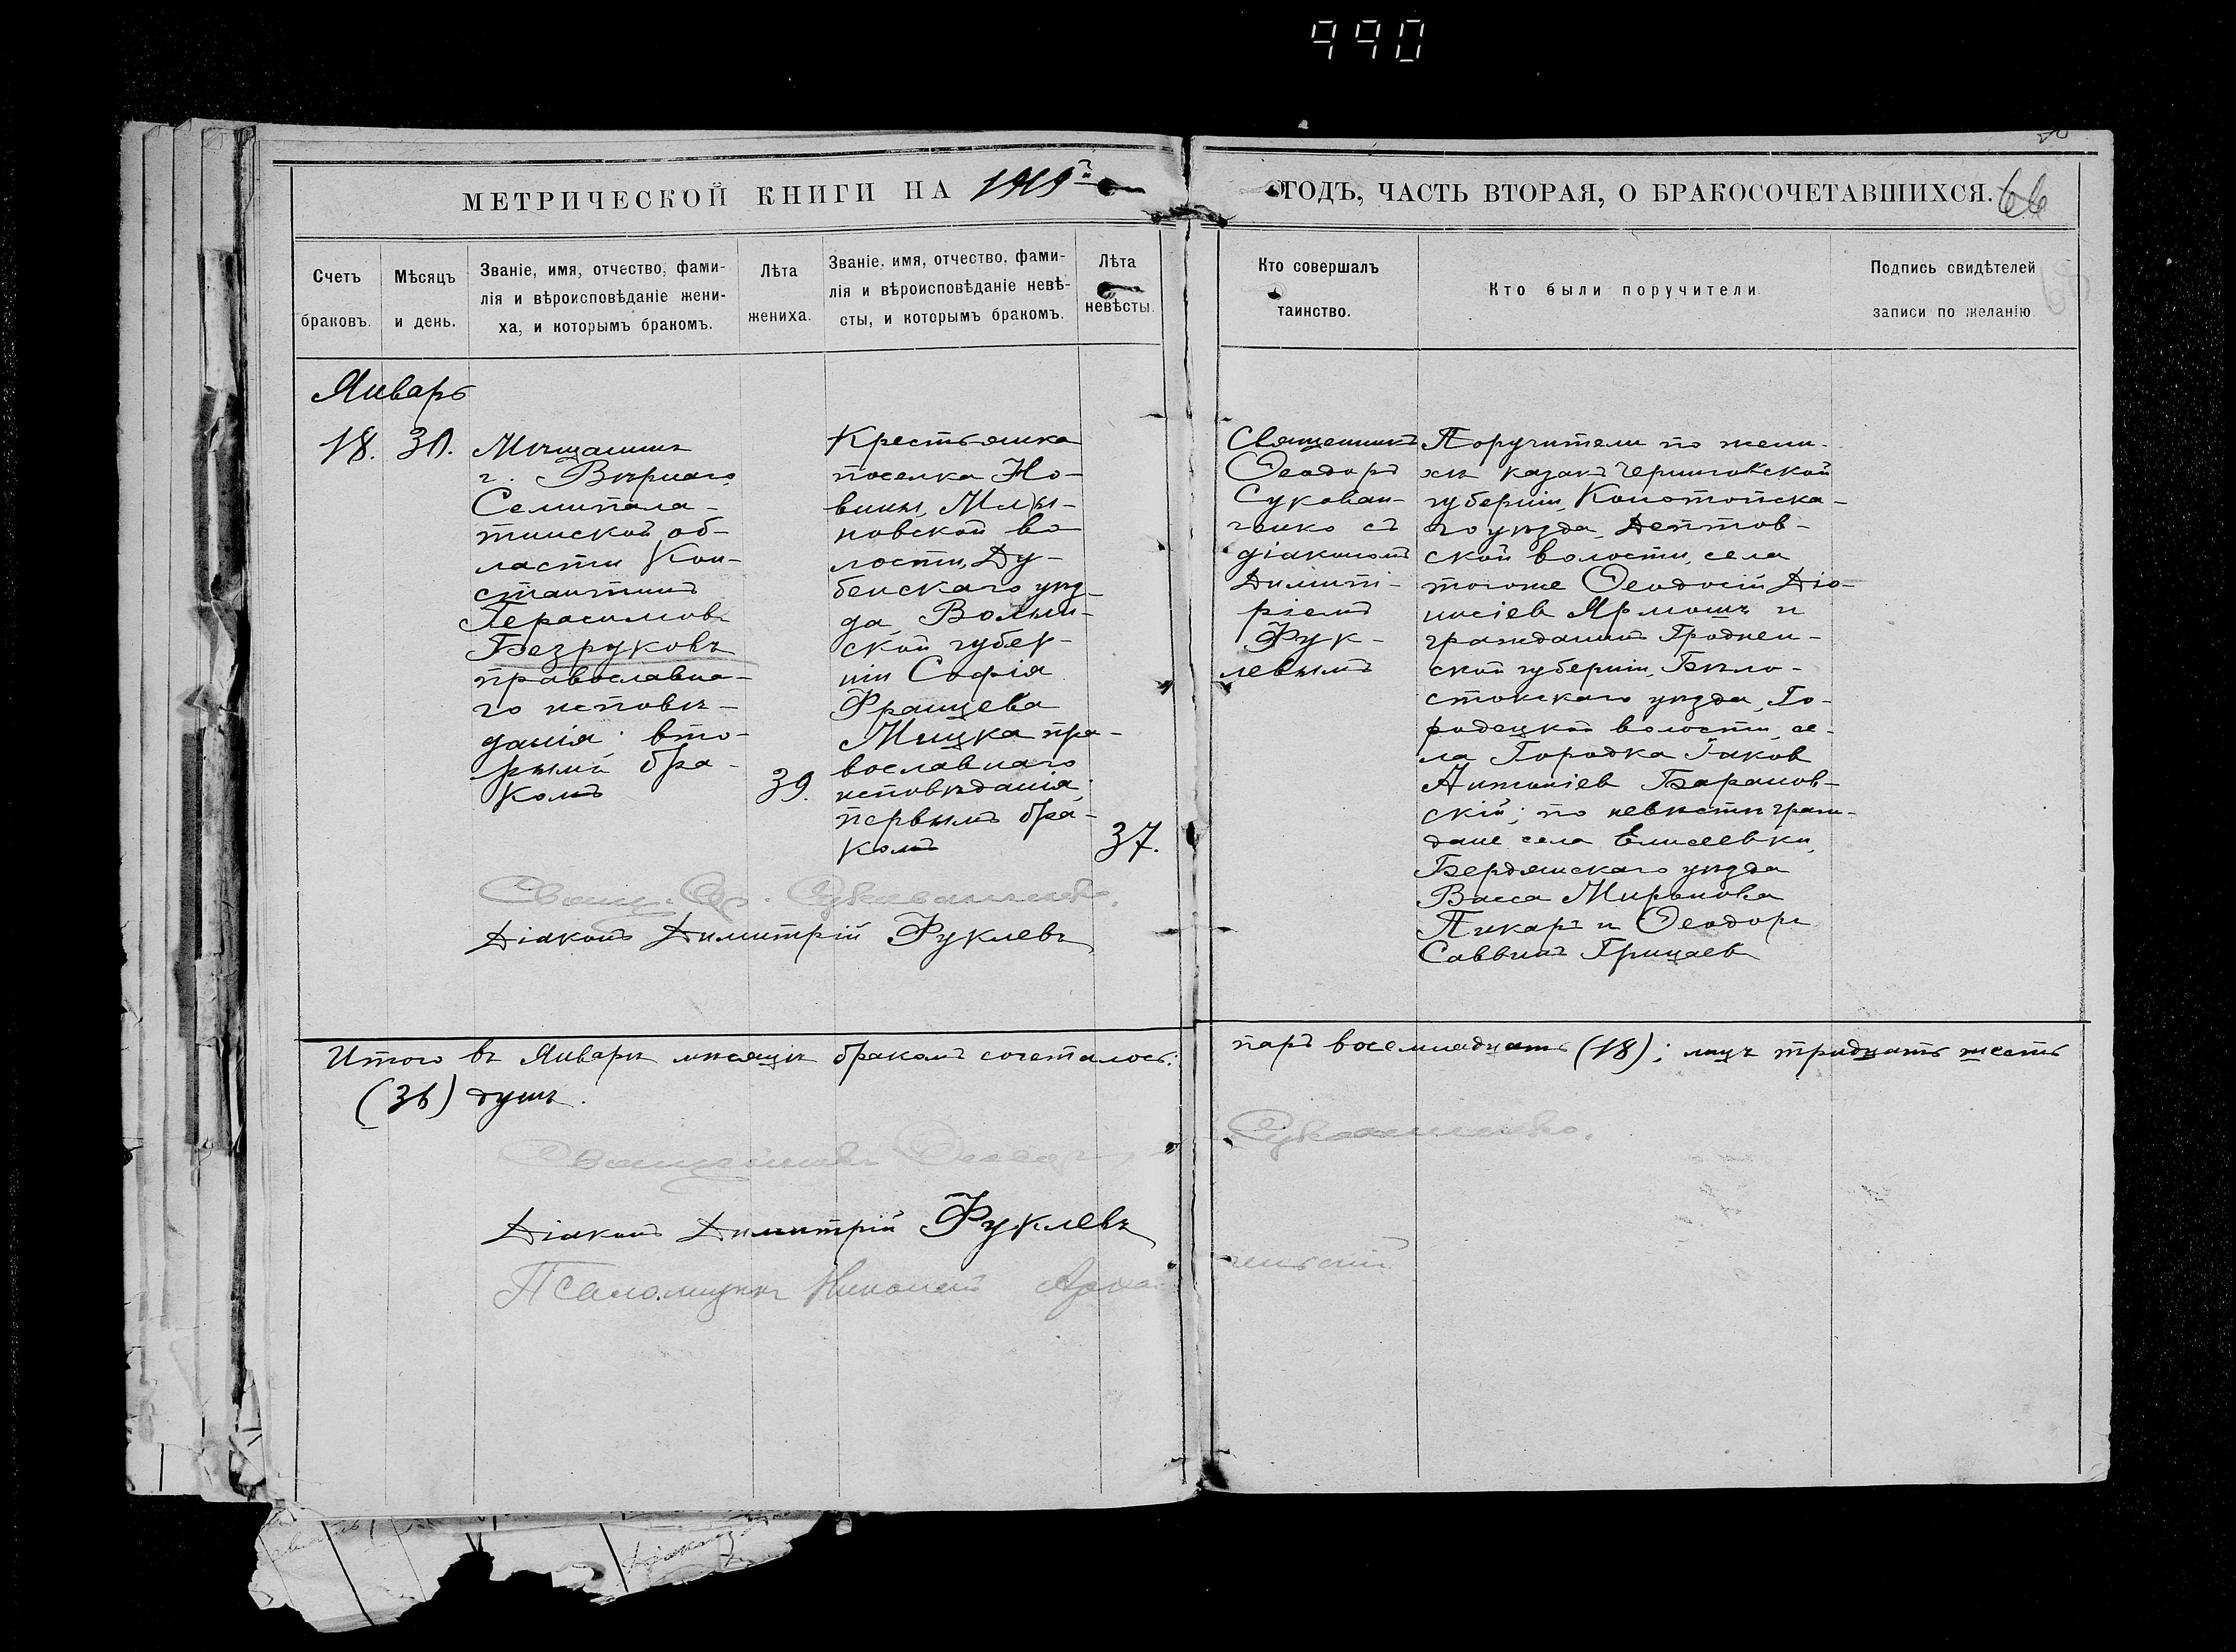 990
МЕТРИЧЕСКОЙ КНИГИ НА 1919й ГОДЪ, ЧАСТЬ ВТОРАЯ, О БРАКОСОЧЕТАВШИХСЯ. 66
Счетъ
браковъ.
Мѣсяцъ
и день.
Званіе, имя, отчество, фами-
лія и вѣроисповѣданіе жени-
ха, и которымъ бракомъ.
Лѣта
жениха.
Званіе, имя, отчество, фами-
лія и вѣроисповѣданіе невѣ-
сты, и которымъ бракомъ.
Лѣта
невѣсты.
Кто совершалъ
таинство.
Кто были поручители.
Подпись свидѣтелей
записи по желанію
Январь
18. 30.
Мѣщанинъ
г. Вѣрнаго,
Семипала-
тинской об-
ласти Кон-
стантинъ
Герасимовъ
Безруковъ
православна-
го исповѣ-
данія; вто-
рымъ бра-
комъ
39.
Крестьянка
поселка Но-
вины, Млы-
новской во-
лости, Ду-
бенскаго уѣз-
да, Волын-
ской губер-
ніи Софія
Францева
Мицка пра-
вославнаго
исповѣданія;
первымъ бра-
комъ
37.
Священникъ
Ѳеодоръ
Сукован-
ченко съ
діакономъ
Димитрі-
ріемъ
Фук-
левымъ
Поручители по жени-
хѣ: казакъ Черниговской
губерніи, Конотопска-
го уѣзда, Дептов-
ской волости, села
тогоже Ѳеодосій Діо-
нисіев Ярмошъ и
гражданинъ Гроднен-
ской губерніи, Бѣло-
стокскаго уѣзда, Го-
родецкой волости, се-
ла Городка Іаков
Антоніев Баранов-
скій; по невѣстѣ: граж-
дане села Елисеевки,
Бердянскаго уѣзда
Васса Миронова
Пикаръ и Ѳеодоръ
Саввинъ Грицаев
Свящ. Ѳ. Сукованченко.
Діаконъ Димитрій Фуклевъ
Итого въ Январѣ мѣсяцѣ бракомъ сочеталось: паръ восемнадцать (18); лицъ тридцать шесть
(36) душъ.
Священникъ Ѳеодоръ Сукованченко.
Діаконъ Димитрій Фуклевъ
Псаломщикъ Николай